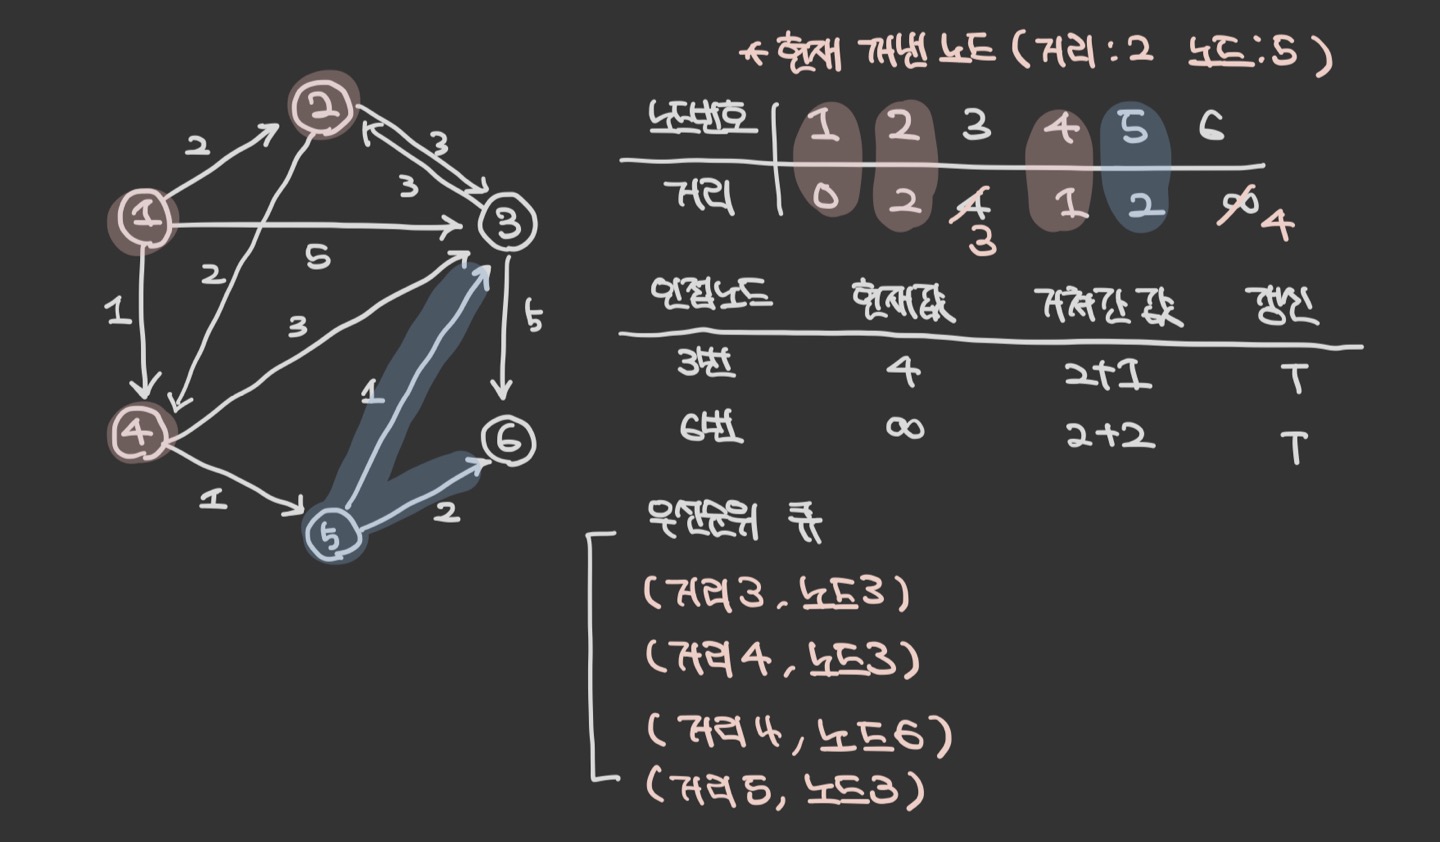 * 현재 꺼낸 노드 (거리 : 2 노드 : 5)
노드번호 1 2 3 4 5 6
거리 0 2 4 1 2 ∞
3 4
인접노드 현재값 거쳐간 값 갱신
3번 4 2+1 T
6번 ∞ 2+2 T
우선순위 큐
(거리 3, 노드3)
(거리 4, 노드3)
(거리 4, 노드6)
(거리 5, 노드3)
2
2
3
3
1
5
3
2
1
3
5
1
4
6
1
2
5